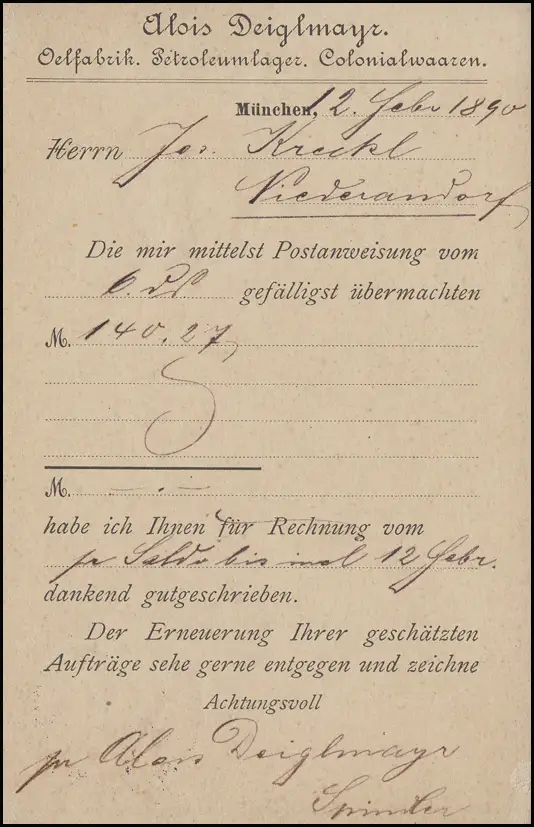 Alois Deiglmayr.
Oelfabrik. Petroleumlager. Colonialwaaren.
München, 12. Febr 1890
Herrn Jos. Kreckl
Niederandorf
Die mir mittelst Postanweisung vom
6. ds gefälligst übermachten
M. 140.27
M. – . –
habe ich Ihnen für Rechnung vom
pr Saldo bis incl 12 Febr.
dankend gutgeschrieben.
Der Erneuerung Ihrer geschätzten
Aufträge sehe gerne entgegen und zeichne
Achtungsvoll
pr Alois Deiglmayr
Spindler